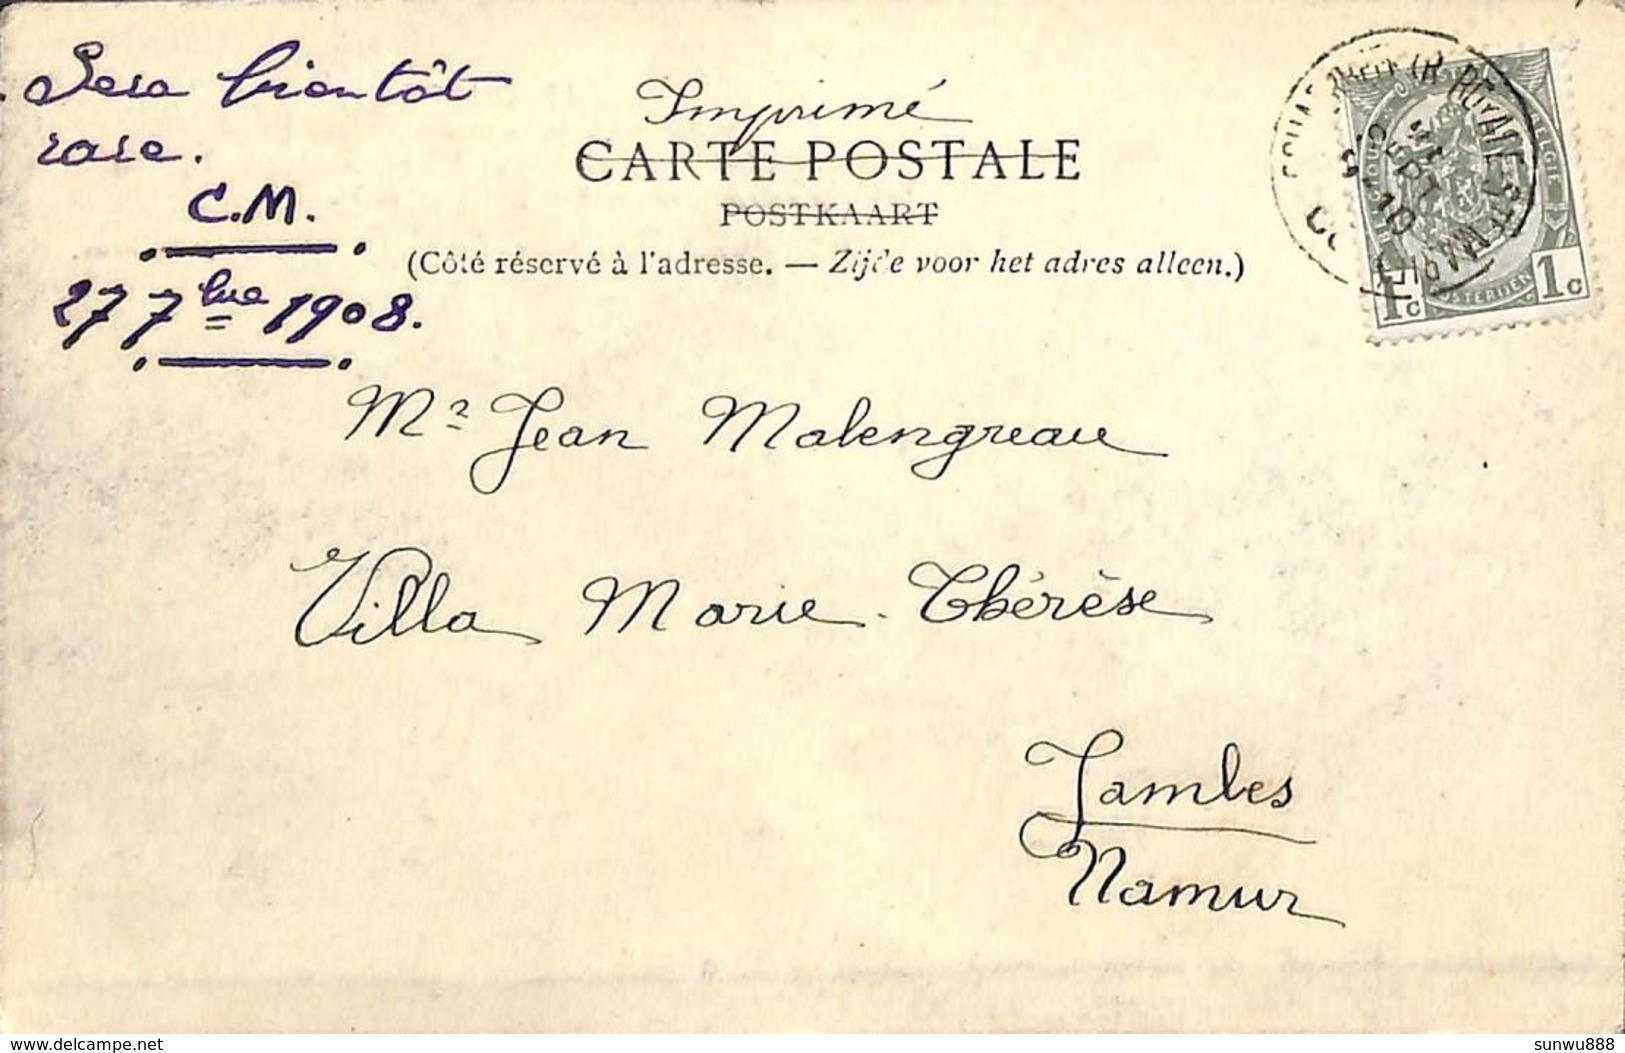 Sera bientôt
rare.
C.M.
27 7bre 1908.
Imprimé
CARTE POSTALE
POSTKAART
(Côté réservé à l'adresse. — Zijde voor het adres alleen.)
BELGIE
1c 1c
Mr Jean Malengreau
Villa Marie-Thérèse
Jambes
Namur
delcampe.net
sunwu888